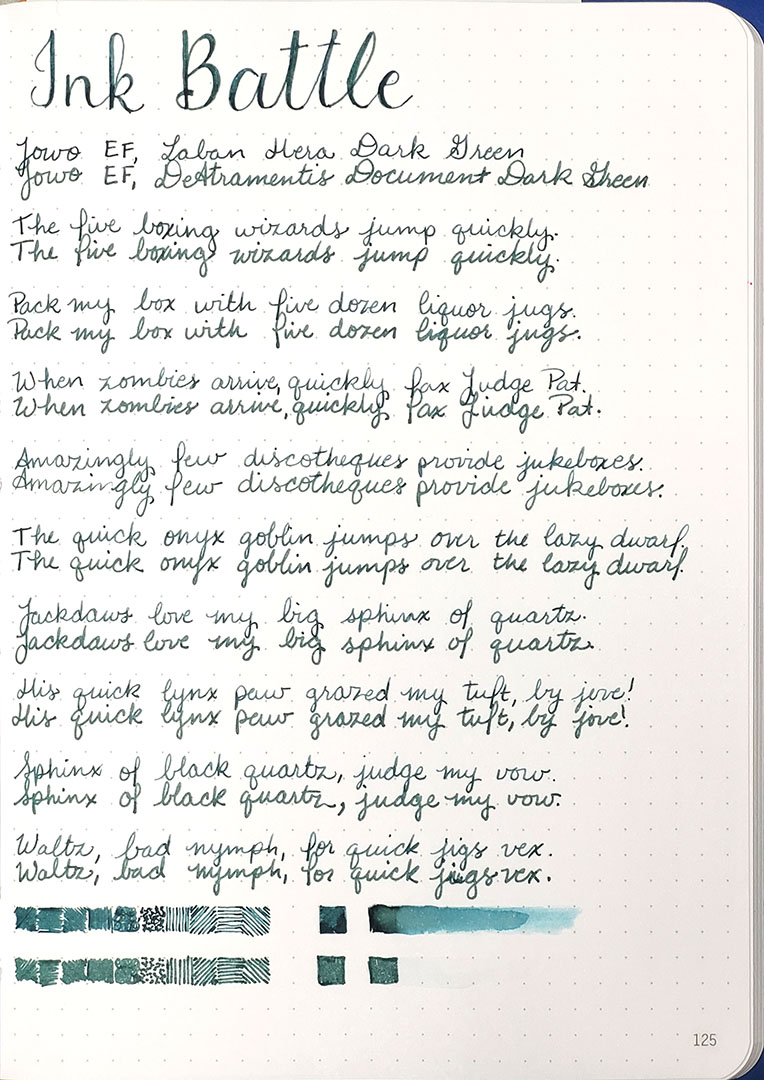 Ink Battle
Jowo EF, Laban Hera Dark Green
Jowo EF, DeAtramentis Document Dark Green
The five boxing wizards jump quickly.
The five boxing wizards jump quickly.
Pack my box with five dozen liquor jugs.
Pack my box with five dozen liquor jugs.
When zombies arrive, quickly fax Judge Pat.
When zombies arrive, quickly fax Judge Pat.
Amazingly few discotheques provide jukeboxes.
Amazingly few discotheques provide jukeboxes.
The quick onyx goblin jumps over the lazy dwarf.
The quick onyx goblin jumps over the lazy dwarf.
Jackdaws love my big sphinx of quartz.
Jackdaws love my big sphinx of quartz.
His quick lynx paw grazed my tuft, by jove!
His quick lynx paw grazed my tuft, by jove!
Sphinx of black quartz, judge my vow.
Sphinx of black quartz, judge my vow.
Waltz, bad nymph, for quick jigs vex.
Waltz, bad nymph, for quick jigs vex.
125